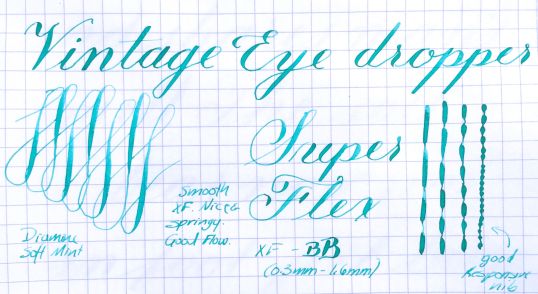 Vintage Eye dropper
Super
Flex
Smooth
XF. Nice &
springy.
Good Flow.
Diamine
Soft Mint
XF - BB
(0.3mm - 1.6mm)
good
Responsive
nib